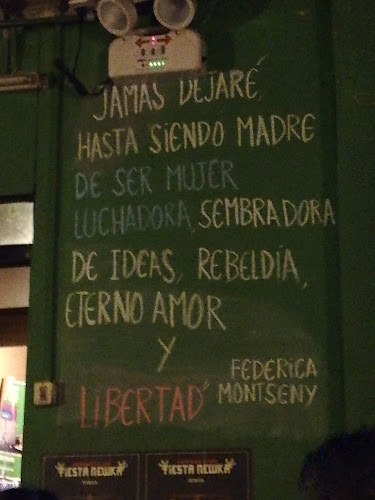 JAMAS DEJARÉ
HASTA SIENDO MADRE
DE SER MUJER
LUCHADORA, SEMBRADORA
DE IDEAS, REBELDÍA,
ETERNO AMOR
Y
LIBERTAD"
FEDERICA
MONTSENY
FIESTA NEWKA
FIESTA NEWKA